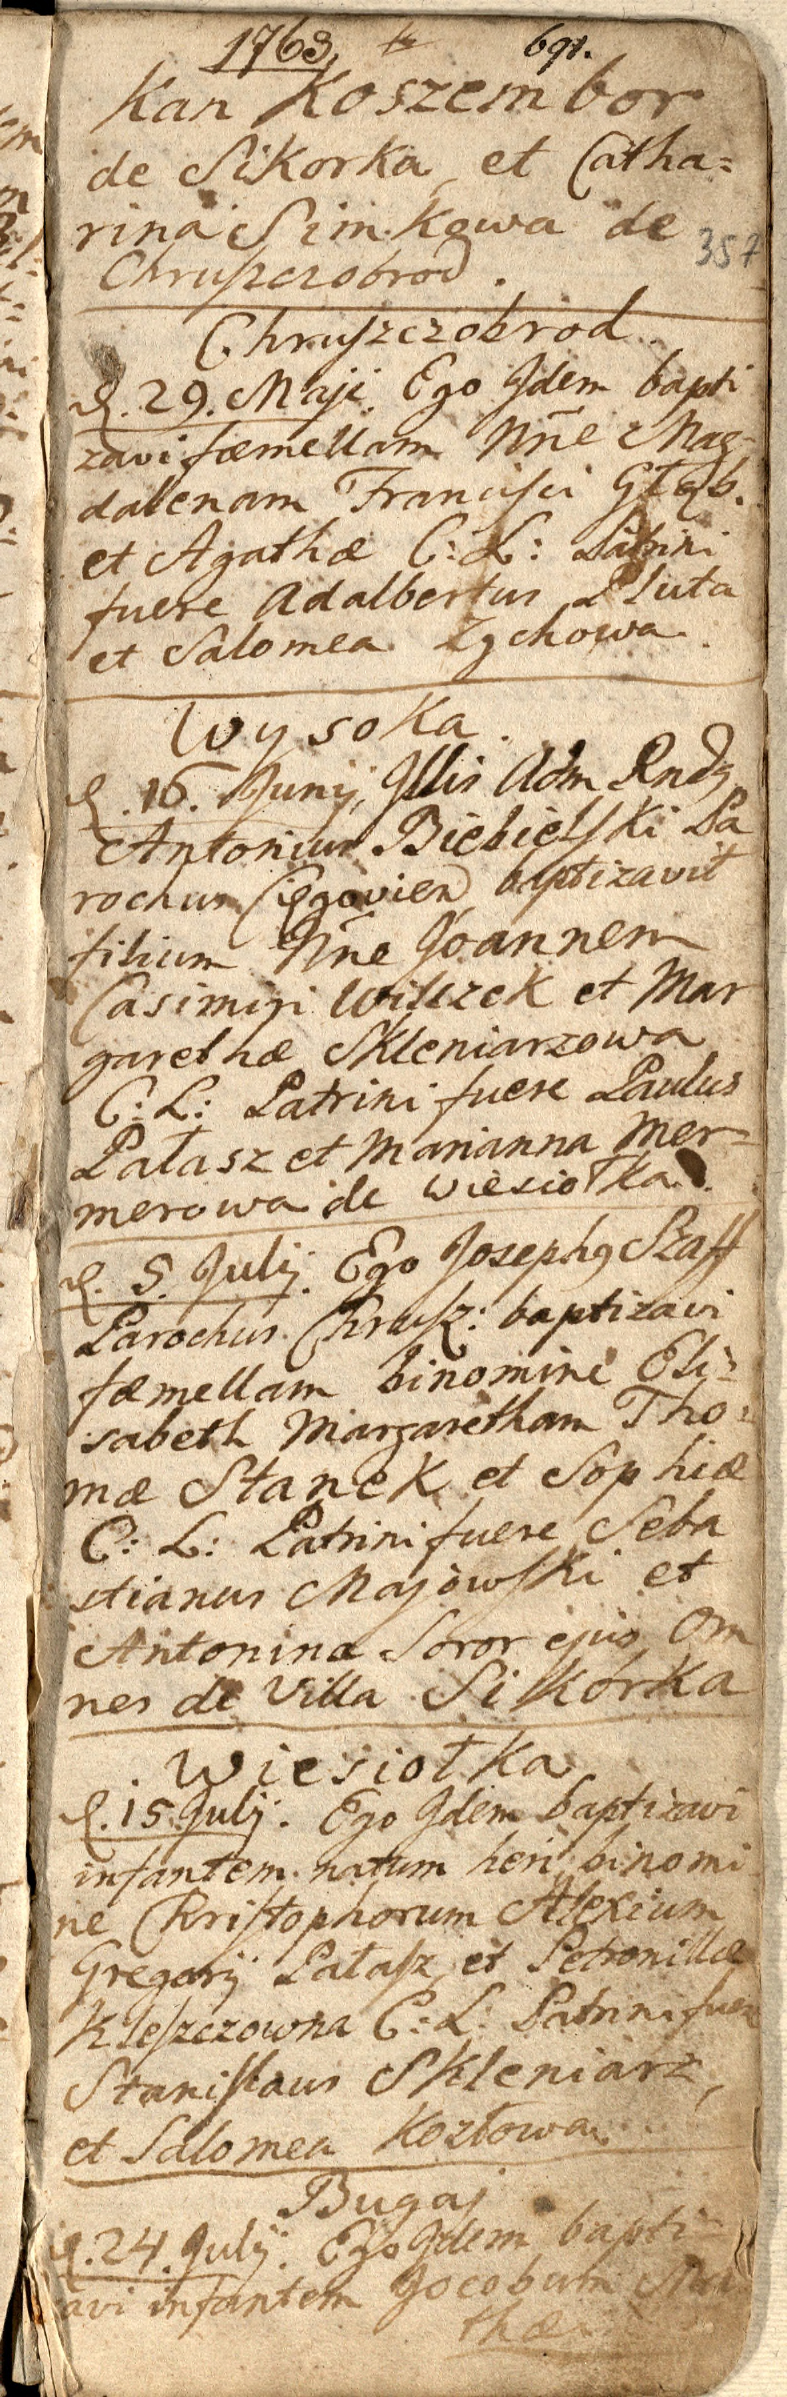 1763. 691.
Kan Koszembor
de Sikorka, et Catha=
rina Simkowa de
357
Chruszczobrod.
Chruszczobrod.
d. 29. Maji. Ego Idem bapti
zavi fœmellam Nñe Mag=
dalenam Francisci Głąb.
et Agathæ C: L: Patrini
fuere Adalbertus Pluta
et Salomea Zychowa.
Wysoka.
d. 16. Junij, Illis Adm Rndg
Antonius Biebielski Pa
rochus Cięgovien baptizavit
filium Nñe Joannem
Casimiri Wilczek et Mar
garethæ Skleniarzowa
C: L: Patrini fuere Paulus
Pałasz et Marianna Mer=
merowa de Wiesiołka.
d. 5. Julij. Ego Josephg Szaff
Parochus Chrusz: baptizavi
fœmellam binomine Eli=
sabeth Margaretham Tho=
mæ Stanek et Sophiæ
C: L: Patrini fuere Seba
stianus Majowski et
Antonina Soror ejus Om
nes de Villa Sikorka
Wiesiołka
d. 15 Julij. Ego Idem baptizavi
infantem natum heri binomi
ne Christophorum Alexium
Gregorij Pałasz et Petronillæ
Kleszczowna C: L: Patrini fuere
Stanislaus Skleniarz,
et Salomea Kozłowa.
Bugaj
d. 24. Julij. Ego Idem bapti=
avi infantem Jocobum
thæ